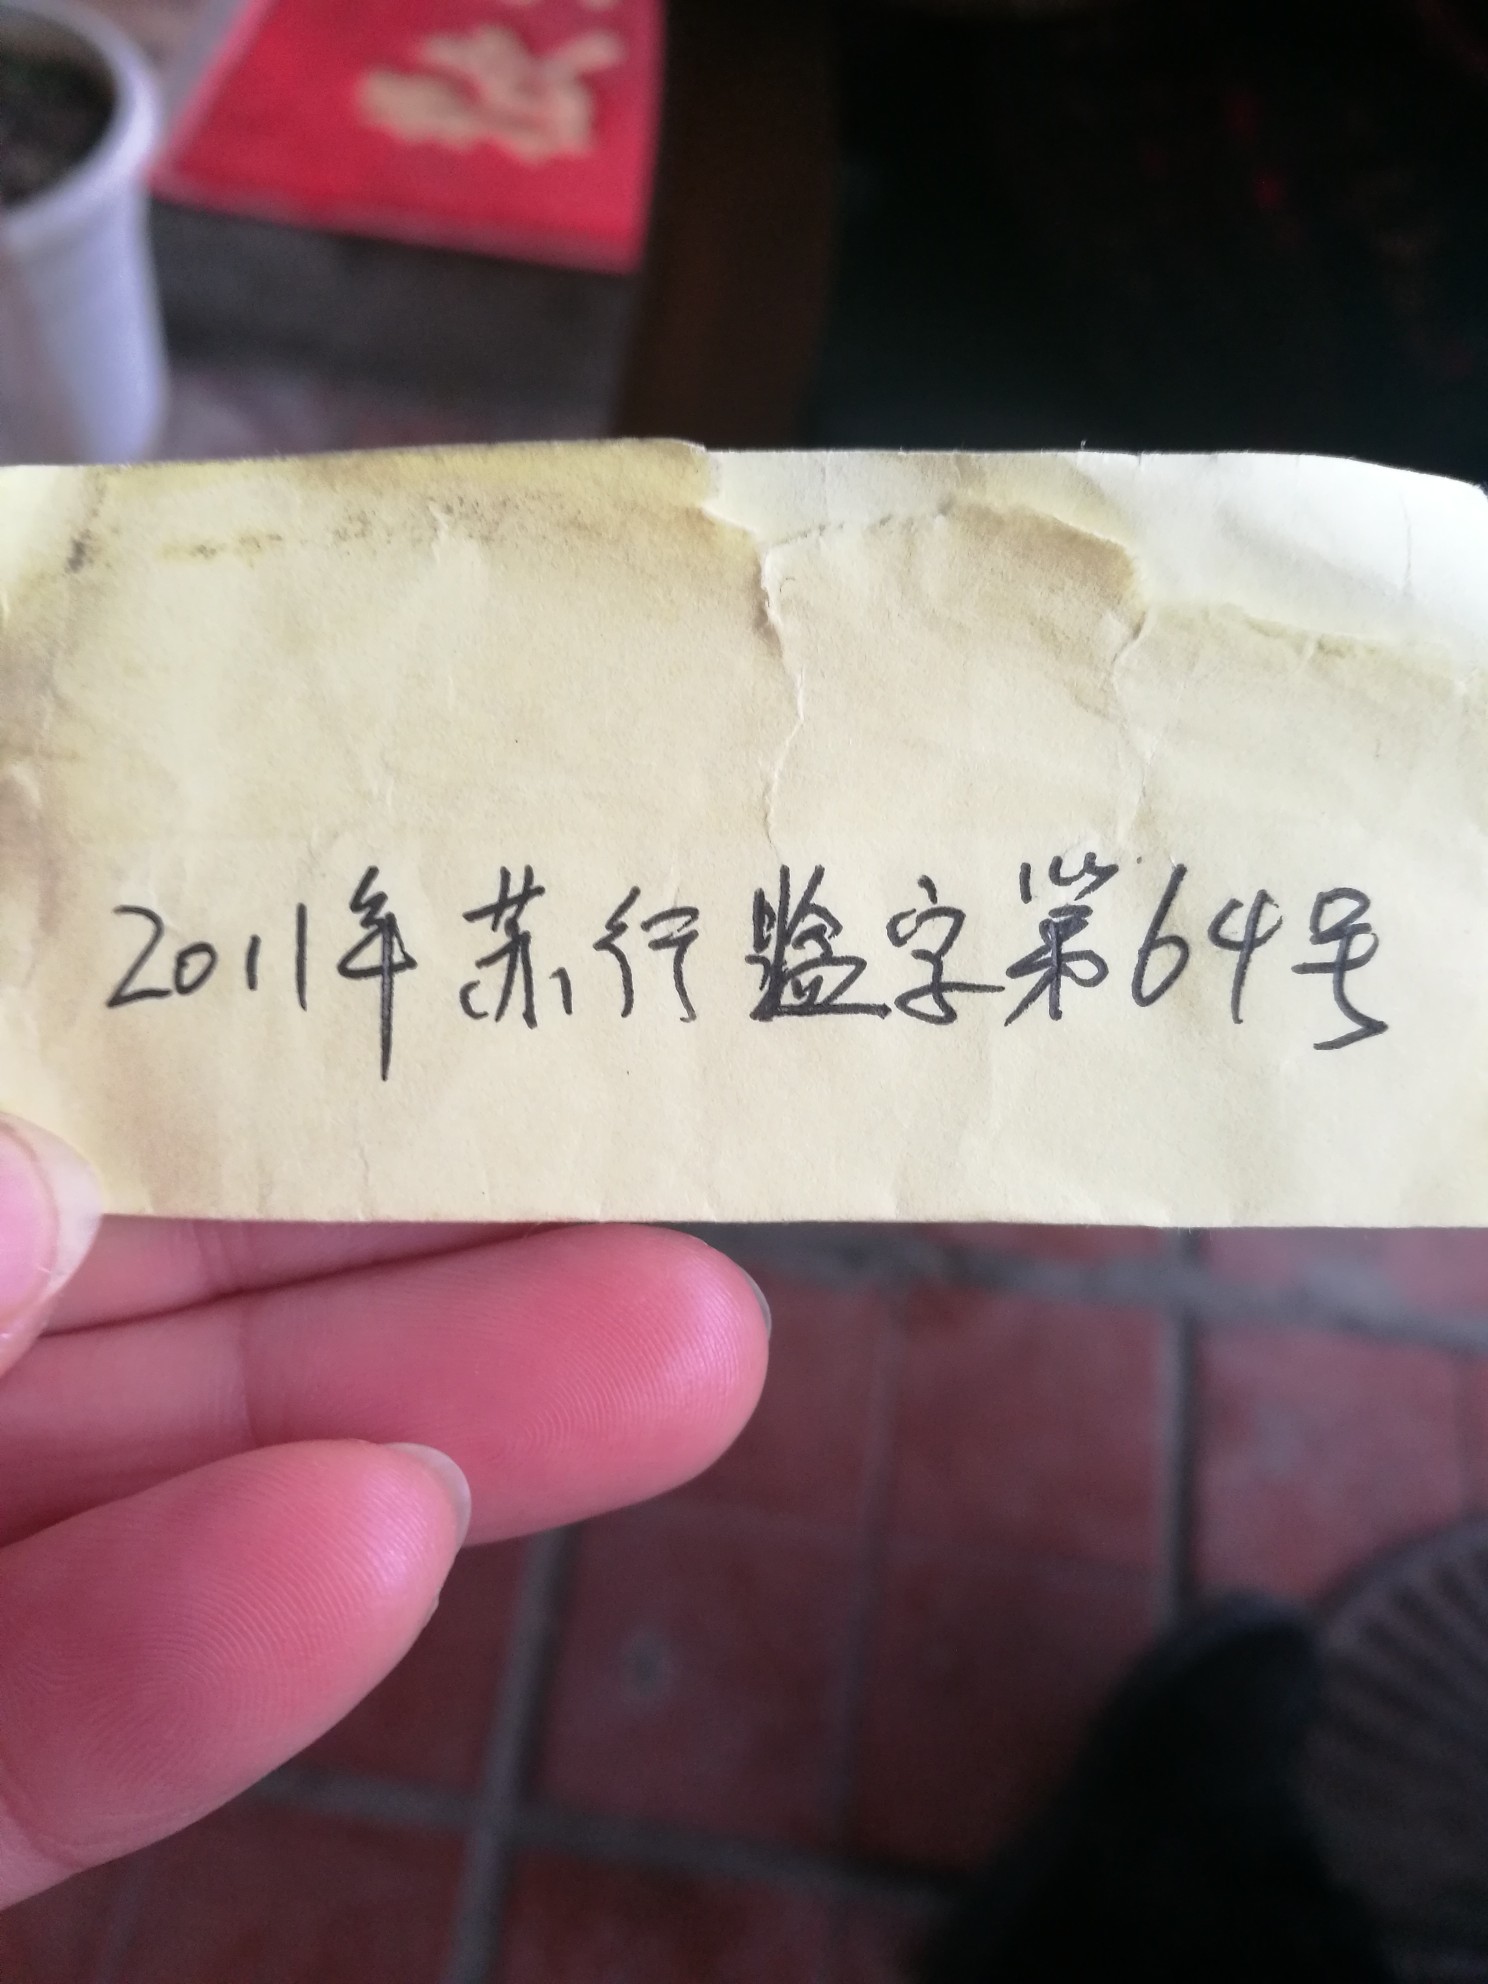 2011年苏行验字第64号